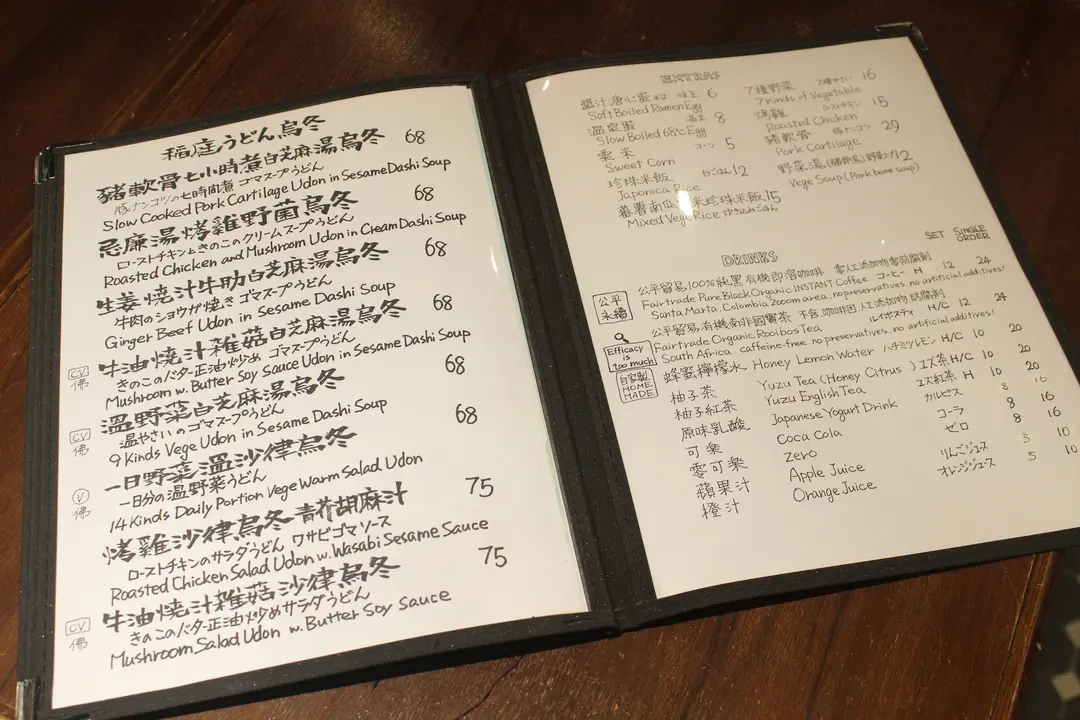 稲庭うどん烏冬
豬軟骨七小時煮白芝麻湯烏冬 68
豚ナンコツの七時間煮 ゴマスープうどん
Slow Cooked Pork Cartilage Udon in Sesame Dashi Soup
忌廉湯烤雞野菌烏冬 68
ローストチキンときのこのクリームスープうどん
Roasted Chicken and Mushroom Udon in Cream Dashi Soup
生姜燒汁牛肋白芝麻湯烏冬 68
牛肉のショウガ焼き ゴマスープうどん
Ginger Beef Udon in Sesame Dashi Soup
牛油燒汁雑菇白芝麻湯烏冬 68
CV きのこのバター正油炒め ゴマスープうどん
佛 Mushroom w. Butter Soy Sauce Udon in Sesame Dashi Soup
溫野菜白芝麻湯烏冬 68
CV 温やさいのゴマスープうどん
佛 9 Kinds Vege Udon in Sesame Dashi Soup
一日野菜溫沙律烏冬 68
V 一日分の温野菜うどん
佛 14 Kinds Daily Portion Vege Warm Salad Udon
烤雞沙律烏冬 青芥胡麻汁 75
ローストチキンのサラダうどん ワサビゴマソース
Roasted Chicken Salad Udon w. Wasabi Sesame Sauce
牛油燒汁雑菇沙律烏冬 75
CV きのこのバター正油炒めサラダうどん
佛 Mushroom Salad Udon w. Butter Soy Sauce
EXTRAS
醬汁溏心蛋 味玉 6
Soft Boiled Ramen Egg
溫泉蛋 温玉 8
Slow Boiled 68°C Egg
粟米 コーン 5
Sweet Corn
珍珠米飯 白ごはん 12
Japonica Rice
蕃薯南瓜 米珍珠米飯 15
Mixed Vege Rice ゆき込みごはん
7種野菜 7種やさい 16
7 Kinds of Vegetable
烤雞 ローストチキン 15
Roasted Chicken
豬軟骨 豚ナンコツ 29
Pork Cartilage
野菜湯(豬骨湯) 野菜スープ 12
Vege Soup (Pork bone soup)
DRINKS SET SINGLE ORDER
公平永續
公平貿易100%純黑有機即溶咖啡 零人工添加物零防腐劑 コーヒー H 12 24
Fairtrade Pure Black Organic INSTANT Coffee
Santa Marta. Colombia 2000m area. no preservatives. no artificial additives!
Efficacy is too much
公平貿易有機南非國寶茶 不含咖啡因人工添加物防腐劑
Fairtrade Organic Rooibos Tea ルイボスティ H/C 12 24
South Africa caffeine-free. no preservatives. no artificial additives!
自家製 HOME MADE
蜂蜜檸檬水 Honey Lemon Water ハチミツレモン H/C 10 20
柚子茶 Yuzu Tea (Honey Citrus) ユズ茶 H/C 10 20
柚子紅茶 Yuzu English Tea ユズ紅茶 H 10 20
原味乳酸 Japanese Yogurt Drink カルピス 8 16
可樂 Coca Cola コーラ 8 16
零可樂 Zero ゼロ 8 16
蘋果汁 Apple Juice りんごジュース 5 10
橙汁 Orange Juice オレンジジュース 5 10